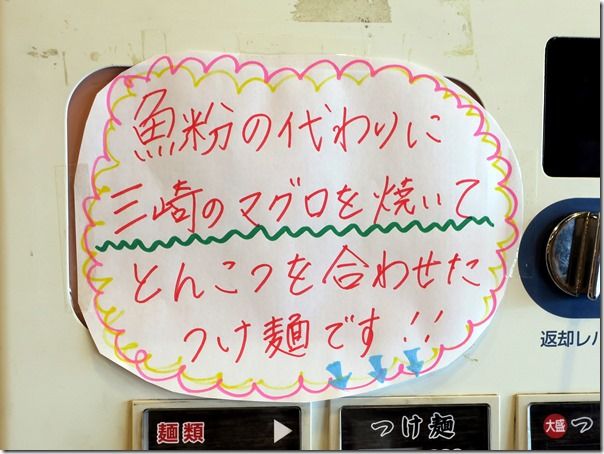 魚粉の代わりに
三崎のマグロを焼いて
とんこつを合わせた
つけ麺です!!
返却レバ
麺類
つけ麺
大盛 つ